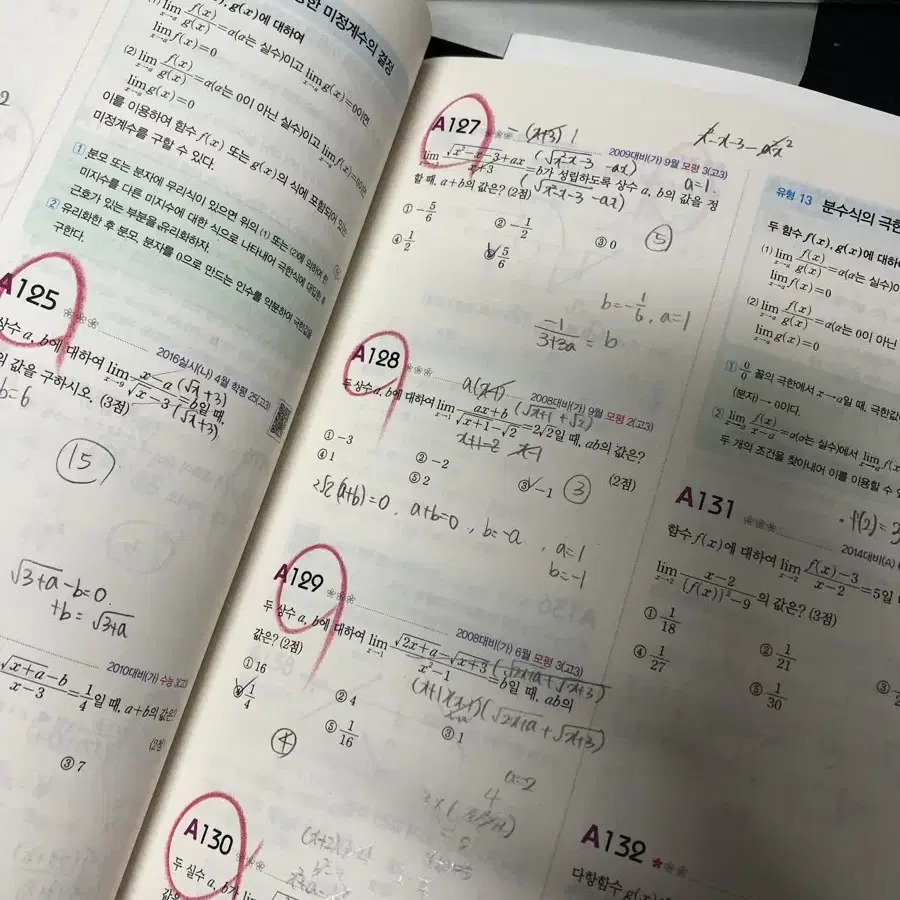 한 미정계수의 결정
g(x)에 대하여
lim f(x)/g(x)=α(α는 실수)이고 lim g(x)=0이면
lim f(x)=0
(2) lim f(x)/g(x)=α(α는 0이 아닌 실수)이고 lim f(x)=0이면
lim g(x)=0
이를 이용하여 함수 f(x) 또는 g(x)의 식에 포함되어 있는
미정계수를 구할 수 있다.
① 분모 또는 분자에 무리식이 있으면 위의 (1) 또는 (2)에 의하여 한
미지수를 다른 미지수에 대한 식으로 나타내어 극한식에 대입한 후
근호가 있는 부분을 유리화하자.
② 유리화한 후 분모, 분자를 0으로 만드는 인수를 약분하여 극한값을
구한다.
A125
2016실시(나) 4월 학평 25(고3)
상수 a, b에 대하여 lim x→9 (x-a)/(√x-3)=b일 때,
(√x+3)
(√x+3)
의 값을 구하시오. (3점)
b=6
15
√3+a-b=0
+b=√3+a
2010대비(가) 수능 3(고3)
(√x+a-b)/(x-3)=1/4일 때, a+b의 값은?
(2점)
③ 7
A127
-(x+3) 1
x²-x-3-ax²
2009대비(가) 9월 모평 3(고3)
(√x²-x-3 -ax)
a=1.
lim (√x²-x-3+ax)/(x+3)=b가 성립하도록 상수 a, b의 값을 정
(√x²-x-3-ax)
할 때, a+b의 값은? (2점)
① -5/6
② -1/2
③ 0
⑤
④ 1/2
⑤ 5/6
b=-1/6, a=1
-1/(3+3a)=b
A128
a(x-1)
2008대비(가) 9월 모평 2(고3)
(√x+1+√2)
두 상수 a, b에 대하여 lim x→1 (ax+b)/(√x+1-√2)=2√2일 때, ab의 값은?
x+1-2 x-1
(2점)
① -3
② -2
③ -1
③
④ 1
⑤ 2
2√2(a+b)=0, a+b=0, b=-a, a=1
b=-1
A129
2008대비(가) 6월 모평 3(고3)
두 상수 a, b에 대하여 lim x→1 (√2x+a-√x+3)/(x²-1)=b일 때, ab의
(√2x+a+√x+3)
값은? (2점)
(√2x+a+√x+3)
① 16
② 4
③ 1
④ 1/4
⑤ 1/16
④
a=2
4
A130
두 실수 a, b가 lim
유형 13 분수식의 극한
두 함수 f(x), g(x)에 대하
(1) lim f(x)/g(x)=α(α는 실수)이
lim f(x)=0
(2) lim f(x)/g(x)=α(α는 0이 아닌
lim g(x)=0
① 0/0 꼴의 극한에서 x→a일 때, 극한값
(분자)→0이다.
② lim f(x)/(x-a)=α(α는 실수)에서 lim f(x
두 개의 조건을 찾아내어 이를 이용할 수 있
A131
· f(2)=3
2014대비(A)
함수 f(x)에 대하여 lim x→2 (f(x)-3)/(x-2)=5일
lim x→2 (x-2)/({f(x)}²-9)의 값은? (3점)
① 1/18
② 1/21
④ 1/27
⑤ 1/30
A132
다항함수 g(x)